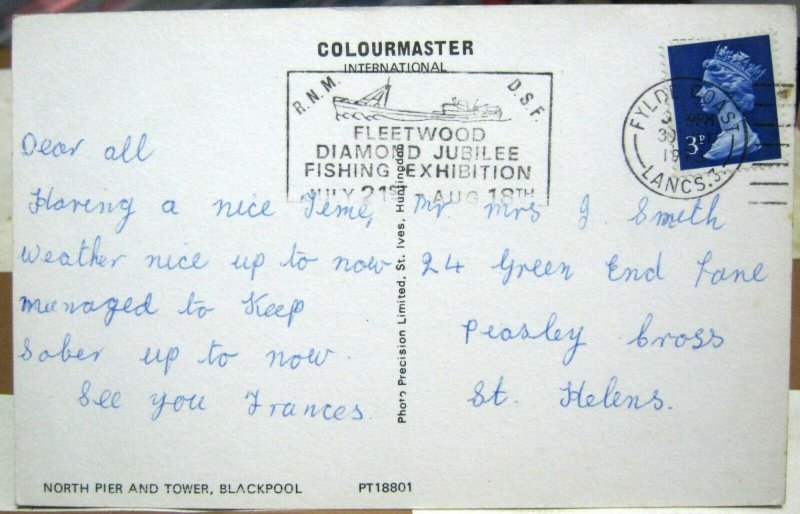 COLOURMASTER
INTERNATIONAL
R.N.M. D.S.F.
FLEETWOOD
DIAMOND JUBILEE
FISHING EXHIBITION
JULY 21ST - AUG 18TH
FYLDE COAST
LANCS.3.
3P
Dear all
Having a nice Time,
Weather nice up to now
managed to Keep
Sober up to now.
See you Frances.
Photo Precision Limited, St. Ives, Huntingdon
Mr Mrs J Smith
24 Green End Lane
Peasley Cross
St. Helens.
NORTH PIER AND TOWER, BLACKPOOL PT18801